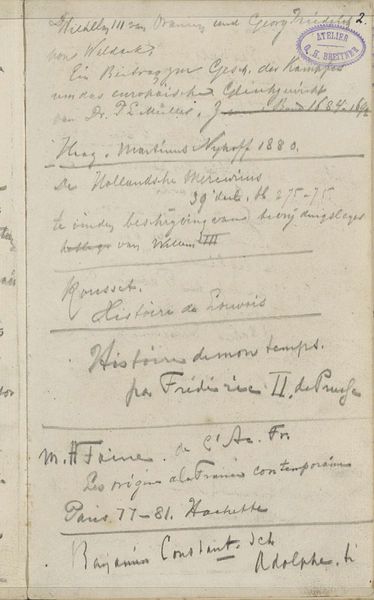 Wilhelm III von Oranien und Georg Friedrich 2.
von Waldeck.
ATELIER
G. H. BREITNER
Ein Beitrag zur Gesch. des Kampfes
um das europäische Gleichgewicht
van Dr. P. L. Müller, Band 1684-1692
Haag. Martinus Nyhoff 1880.
De Hollandsche Mercurius
39e deel. bl 275-75
te vinden beschryving van
van Willem III
Rousset.
Histoire de Louvois
Histoire de mon temps.
par Frédéric II. de Prusse
M. H Taine. de l'Ac. Fr
Les origines de la France contemporaine
Paris 77-81. Hachette
Benjamin Constant.
Adolphe.